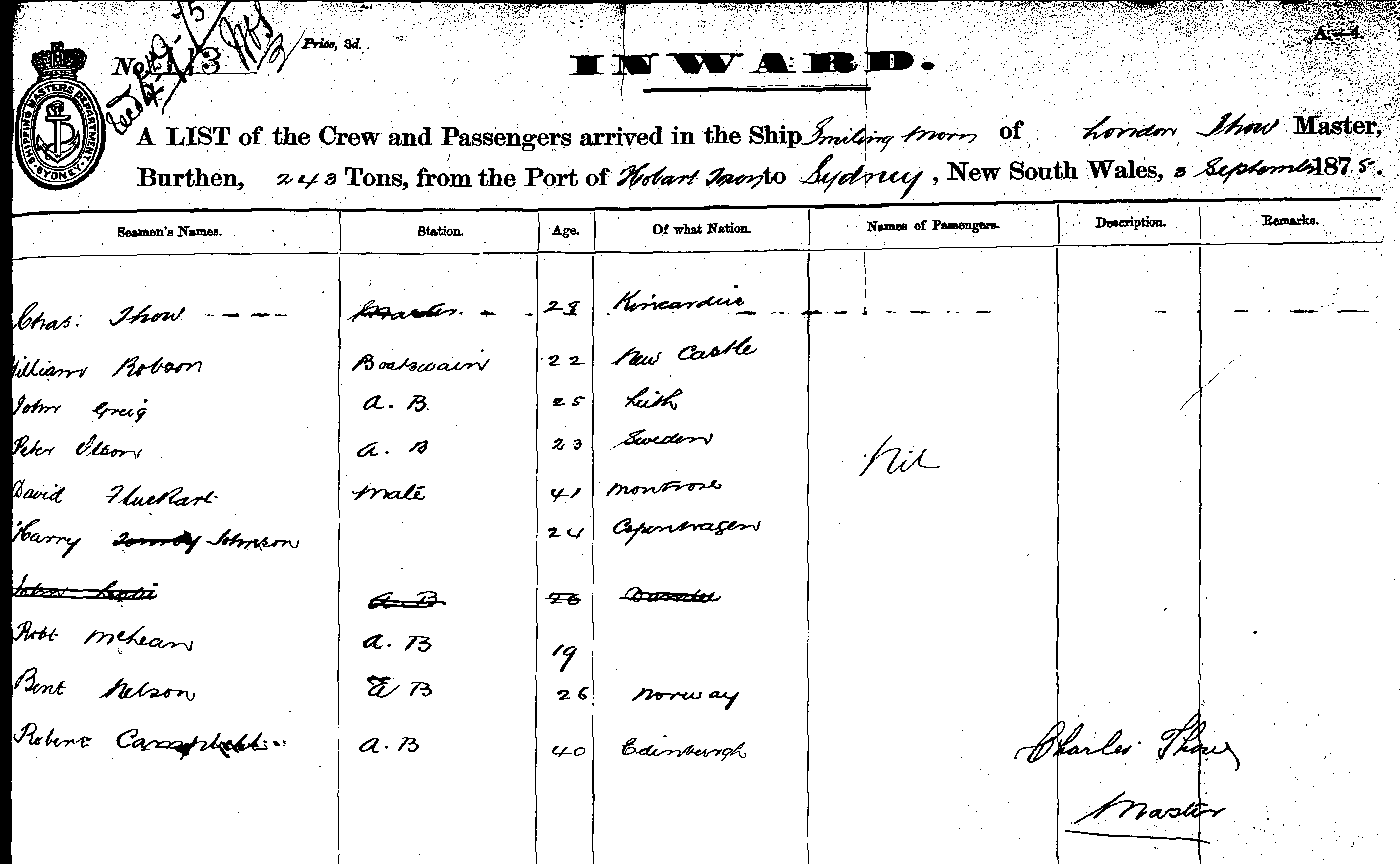 No. 113 Price, 3d.
INWARD.
SHIPPING MASTERS DEPARTMENT SYDNEY
A LIST of the Crew and Passengers arrived in the Ship Smiling Morn of London Thow Master,
Burthen, 243 Tons, from the Port of Hobart Town to Sydney, New South Wales, 3 September 1875.
Seamen's Names. Station. Age. Of what Nation. Names of Passengers. Description. Remarks.
Chas: Thow Master 29 Kincardine
William Robson Boatswain 22 New Castle
John Greig A. B. 25 Leith
Peter Olson A. B 23 Sweden
David Mate 41 Montrose
Nil
Harry Johnson 24 Copenhagen
John A. B 26
Robt McLean A. B 19
Bent Nelson A B 26 Norway
Robert Campbell A. B 40 Edinburgh
Charles Thow
Master